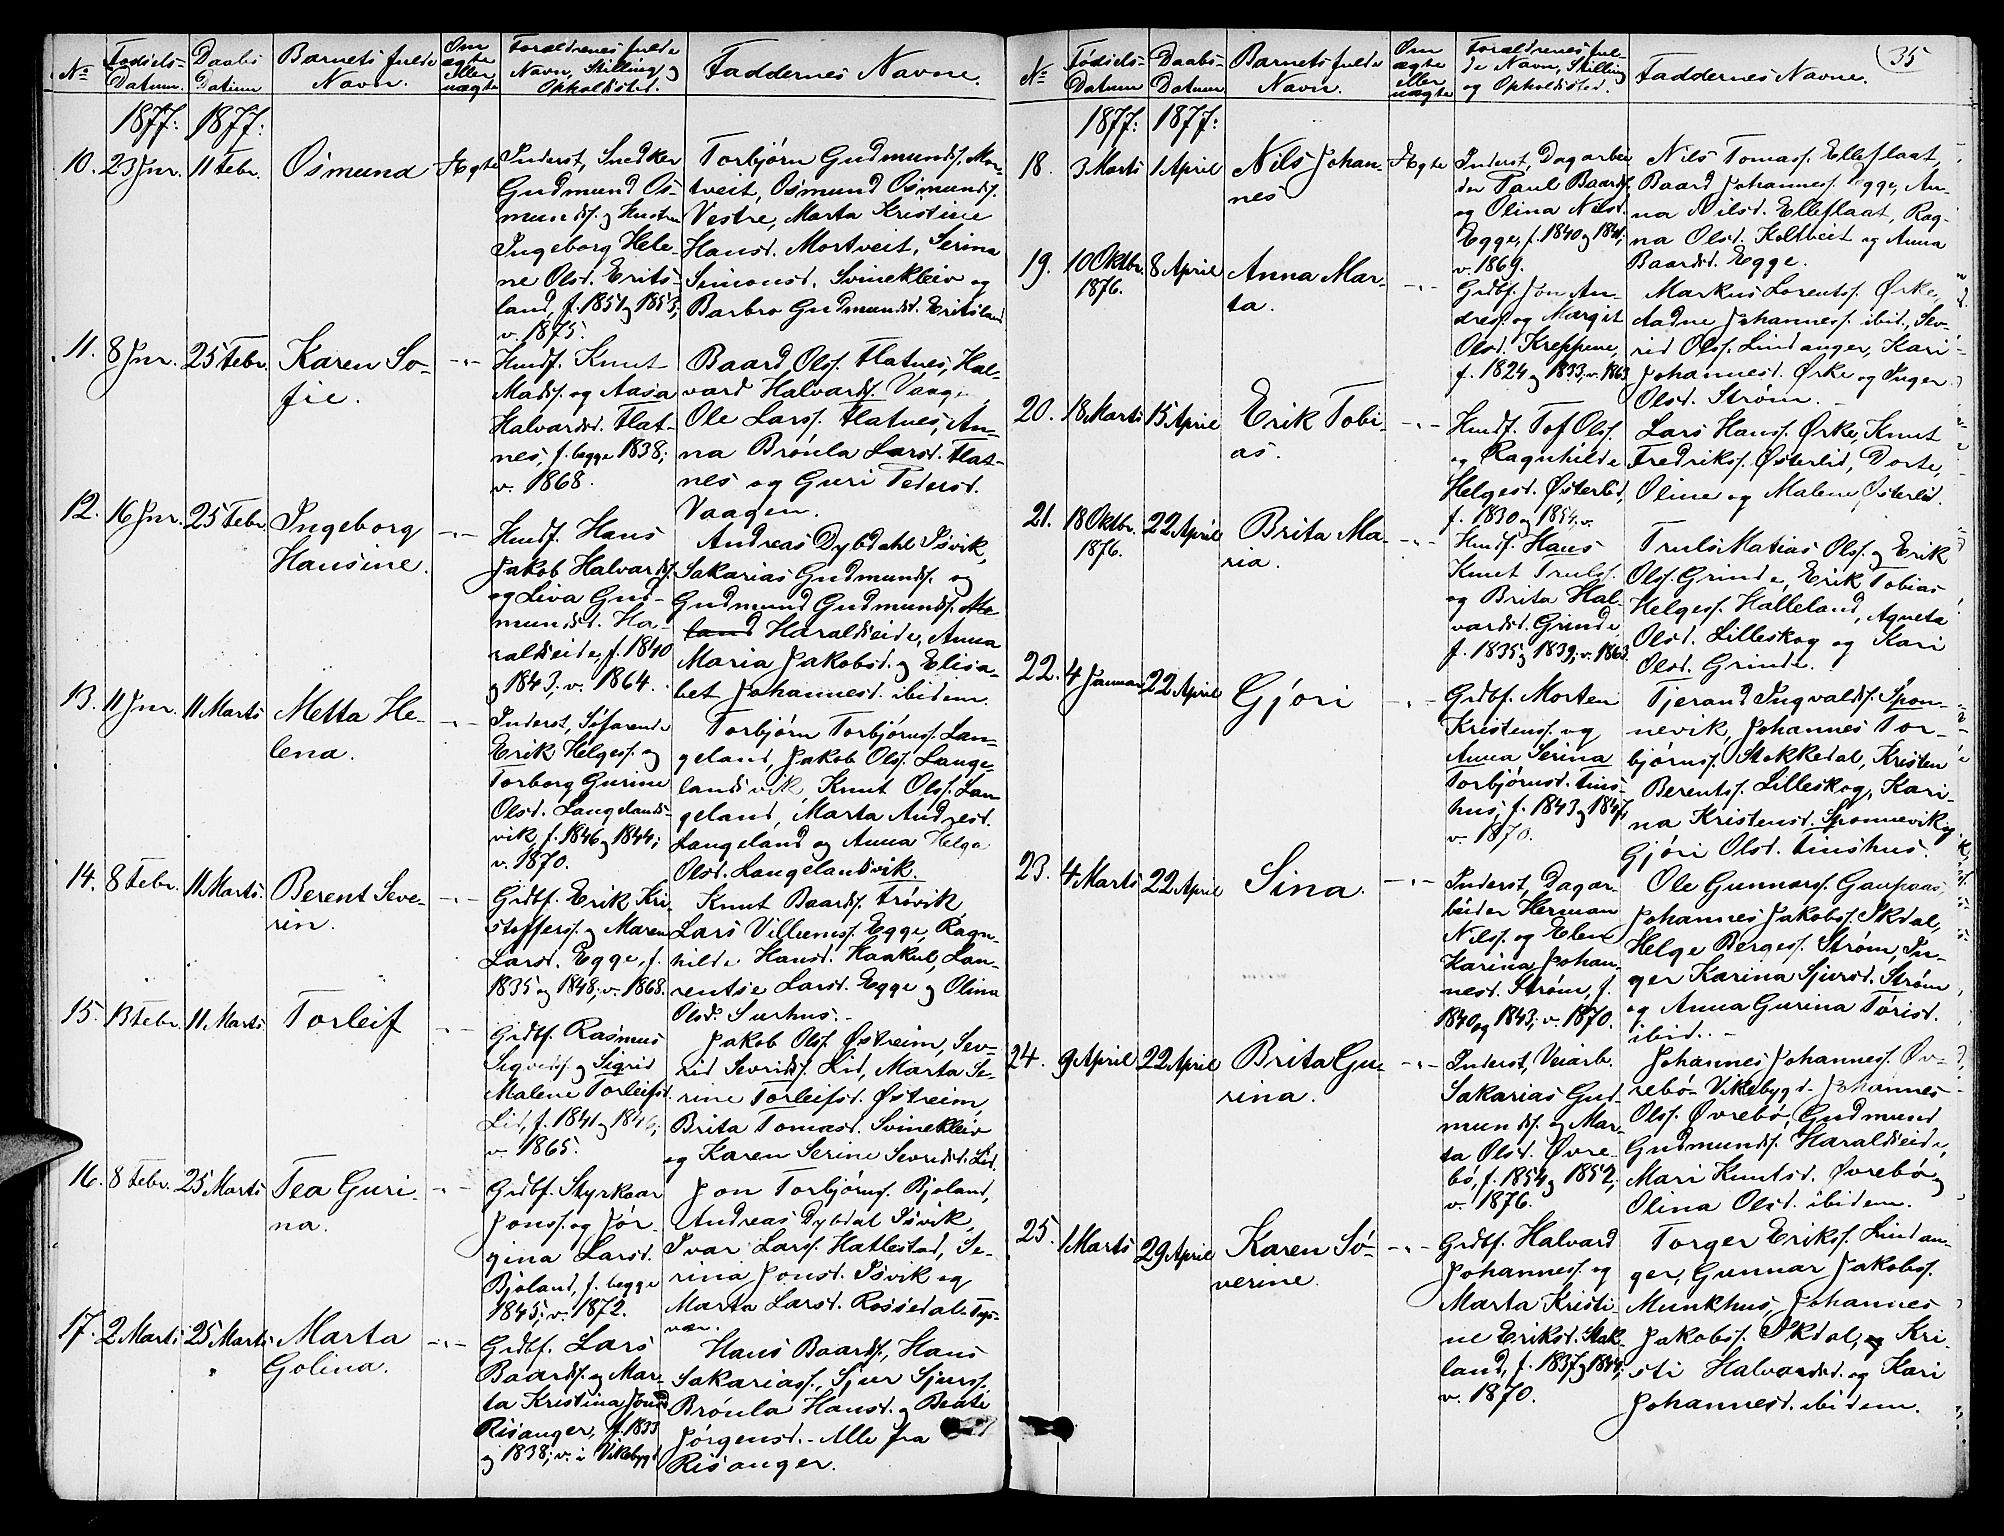 No
Fødsels-
Datum.
Daabs
Datum
Barnets fulde
Navn.
Om
ægte
eller
uægte
Forældrenes fulde
Navn, Stilling og
Opholdssted.
Faddernes Navne.
1877: 1877:
10. 23 Jnr. 11 Febr. Osmund Ægte
Inderst, Snedker
Gudmund Os-
munds. og Hustru
Ingeborg Hele-
ne Olsd. Erits-
land, f. 1851 og 1853;
v. 1875.
Torbjørn Gudmunds. Mor-
tveit, Osmund Osmunds.
Vestre, Marta Kristine
Hansd. Mortveit, Serina
Simonsd. Svinekleiv og
Barbro Gudmundsd. Eritsland
11. 8 Jnr. 25 Febr. Karen So-
fie.
Husf. Knut
Mads. og Aasa
Halvardsd. Flat-
nes, f. begge 1838;
v. 1868.
Baard Ols. Flatnes, Hal-
vard Halvards. Vaage
Ole Lars. Flatnes, An-
na Brónla Larsd. Flat-
nes og Guri Pedersd.
Vaagen.
12. 16 Jnr. 25 Febr. Ingeborg
Hansine.
Husf. Hans
Jakob Halvards.
og Liva Gud-
mundsd. Ha-
raldseide, f. 1840
og 1843; v. 1864.
Andreas Dybdahl Isvik,
Sakarias Gudmunds. og
Gudmund Gudmunds.
Haraldseide, Anna
Maria Jakobsd. og Elisa-
bet Johannesd. ibidem.
13. 11 Jnr. 11 Marts Metta He-
lena.
Inderst, Søfarende
Erik Helges. og
Torborg Gurine
Olsd. Langelands-
vik, f. 1846 og 1844;
v. 1870.
Torbjørn Torbjørns. Lan-
geland, Jakob Ols. Lange-
landsvik, Knut Ols. Lan
geland, Marta Andresd.
Langeland og Anna Helga
Olsd. Langelandsvik.
14. 8 Febr. 11 Marts. Berent Seve-
rin.
Grdbf. Erik Kri-
stoffers. og Maren
Larsd. Egge, f.
1835 og 1848; v. 1868.
Knut Baards. Trøvik
Lars Villums. Egge, Ragn-
hilde Hansd. Haakul, Lau-
rentse Larsd. Egge og Olina
Olsd. Surhus.
15. 13 Febr. 11 Marts. Torleif
Grdbf. Rasmus
Sigveds. og Sigrid
Malene Torleifsd.
Lid, f. 1841 og 1846;
v. 1865.
Jakob Ols. Østreim, Sev-
rid Sevrids. Lid, Marta Se-
rine Torleifsd. Østreim,
Brita Tomasd. Svinekleiv
og Karen Serine Sevridsd. Lid.
16. 8 Febr. 25 Marts Tea Guri-
na.
Grdbf. Styrkaar
Jons. og Jør-
gina Larsd.
Bjoland, f. begge
1845; v. 1872.
Jon Torbjørns. Bjoland,
Andreas Dybdal Isvik,
Ivar Lars. Hatlestad, Se-
rina Jonsd. Isvik og
Marta Larsd. Rossedal Tys-
vær.
17. 2 Marts 25 Marts Marta
Golina.
Grdbf. Lars
Baards. og Mar-
ta Kristina Jonsd
Risanger, f. 1833
og 1838; v. i Vikebygd
Hans Baards., Hans
Sakarias., Sjur Sjurs.
Brónla Hansd. og Beate
Jörgensd. - Alle fra
Risanger.
35
No
Fødsels-
Datum
Daabs-
Datum
Barnets fulde
Navn.
Om
ægte
eller
uægte
Forældrenes ful-
de Navn, Stilling
og Opholdssted.
Faddernes Navne.
1877: 1877:
18. 3 Marts 1 April Nils Johan-
nes
Ægte
Inderst, Dagarbei
der Paul Baards.
og Olina Nilsd.
Egge, f. 1840 og 1841;
v. 1869.
Nils Tomass. Elleflaat,
Baard Johanness. Egge, An-
na Nilsd. Elleflaat, Rag-
na Olsd. Koltveit og Anna
Baardsd. Egge.
19. 10 Oktbr. 1876. 8 April Anna Mar-
ta.
Grdbf. Jon An-
dres. og Margit
Olsd. Kreppene,
f. 1824 og 1833; v. 1863
Markus Lorents. Ørke,
Aadne Johanness. ibid., Sev-
rid Ols. Lindanger, Kari
Johannesd. Ørke og Inger
Olsd. Strøm.
20. 18 Marts 15 April Erik Tobi-
as.
Husf. Tof Ols.
og Ragnhilde
Helgesd. Østerlid,
f. 1830 og 1854. v.
Lars Hans. Ørke, Knut
Fredriks. Østerlid, Dorte,
Oline og Malene Østerlid.
21. 18 Oktbr. 1876. 22 April Brita Ma-
ria.
Husf. Hans
Knut Truls.
og Brita Hal-
vardsd. Grinde,
f. 1835 og 1839; v. 1863.
Truls Matias Ols. og Erik
Ols. Grinde, Erik Tobias
Helges. Halleland, Agneta
Olsd. Lilleskog og Kari
Olsd. Grinde.
22. 4 Januar 22 April Gjøri
Grdbf. Morten
Kristens. og
Anna Serina
Torbjørnsd. Tins-
hus, f. 1843 og 1847;
v. 1870.
Tjerand Ingvalds. Spon-
nevik, Johannes Tor-
bjørns. Stokkedal, Kristen
Berents. Lilleskog, Kari-
na Kristensd. Sponnevik og
Gjøri Olsd. Tinshus.
23. 4 Marts 22 April Sina.
Inderst, Dagar-
beider Herman
Nils. og Elen
Karina Johan-
nesd. Strøm, f.
1840 og 1843; v. 1870.
Ole Gunnars. Gaupaas,
Johannes Jakobs. Ikdal,
Helge Berges. Strøm, In-
ger Karina Sjursd. Strøm
og Anna Gurina Tørisd.
ibid.
24. 9 April 22 April Brita Gu-
rina.
Inderst, Veiarb.
Sakarias Gud
munds. og Mar-
ta Olsd. Øvre-
bø, f. 1854 og 1852;
v. 1876.
Johannes Johanness. Øv-
rebø- Vikebygd- Johannes
Ols. Øvrebø, Gudmund
Gudmunds. Haraldseide,
Mari Knutsd. Øvrebø og
Olina Olsd. ibidem.
25. 1 Marts 29 April Karen Sø-
verine.
Grdbf. Halvard
Johanness. og
Marta Kristi-
ne Eriksd. Stak-
land, f. 1837 og 1844;
v. 1870.
Torger Eriks. Lindan-
ger, Gunnar Jakobs.
Munkhus, Johannes
Jakobs. Ikdal, og Kri-
sti Halvardsd. og Kari
Johannesd. ibidem.